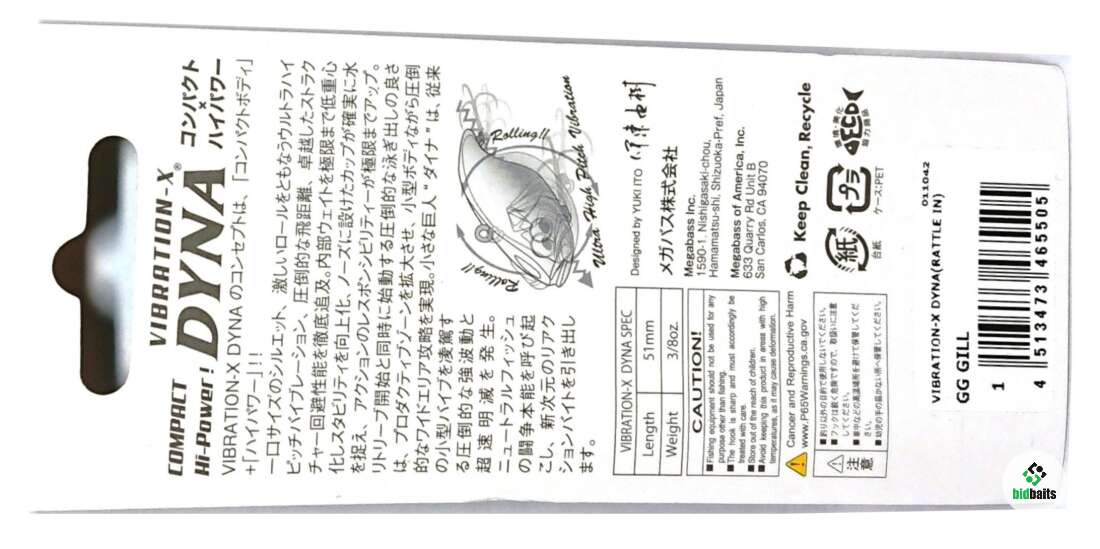 COMPACT
Hi-Power!
VIBRATION-X
DYNA®
コンパクト
×
ハイパワー
VIBRATION-X DYNA のコンセプトは、「コンパクトボディ」
+「ハイパワー」!!!
一口サイズのシルエット、激しいロールをともなうウルトラハイ
ピッチバイブレーション、圧倒的な飛距離、卓越したストラク
チャー回避性能を徹底追及。内部ウェイトを極限まで低重心
化しスタビリティを向上化、ノーズに設けたカップが確実に水
を捉え、アクションのレスポンシビリティーが極限までアップ。
リトリーブ開始と同時に始動する圧倒的な泳ぎ出しの良さ
は、プロダクティブゾーンを拡大させ、小型ボディながら圧倒
的なワイドエリア攻略を実現。小さな巨人“ダイナ”は、従来
の小型バイブを凌駕す
る圧倒的な強波動と
超速明滅を発生。
ニュートラルフィッシュ
の闘争本能を呼び起
こし、新次元のリアク
ションバイトを引き出し
ます。
Rolling!!
Rolling!!
Ultra High Pitch Vibration
VIBRATION-X DYNA SPEC
Length 51mm
Weight 3/8oz.
CAUTION!
■Fishing equipment should not be used for any
purpose other than fishing.
■The hook is sharp and must accordingly be
treated with care.
■Store out of the reach of children.
■Avoid keeping this product in areas with high
temperatures, as it may cause deformation.
Cancer and Reproductive Harm
www.P65Warnings.ca.gov
注意
■釣り以外の目的で使用しないでください。
■フックは鋭く危険ですので、取扱いに注意
してください。
■車中などの高温場所を避けて保管してくだ
さい。
■幼児の手の届かない所へ保管してください。
Designed by YUKI ITO
メガバス株式会社
Megabass Inc.
1590-1, Nishigasaki-chou,
Hamamatsu-shi, Shizuoka-Pref, Japan
Megabass of America, Inc.
633 Quarry Rd Unit B
San Carlos, CA 94070
Keep Clean, Recycle
紙
台紙
プラ
ケース:PET
環境・美化
協力商品
011042
VIBRATION-X DYNA(RATTLE IN)
GG GILL
1
4 513473 465505
bidbaits